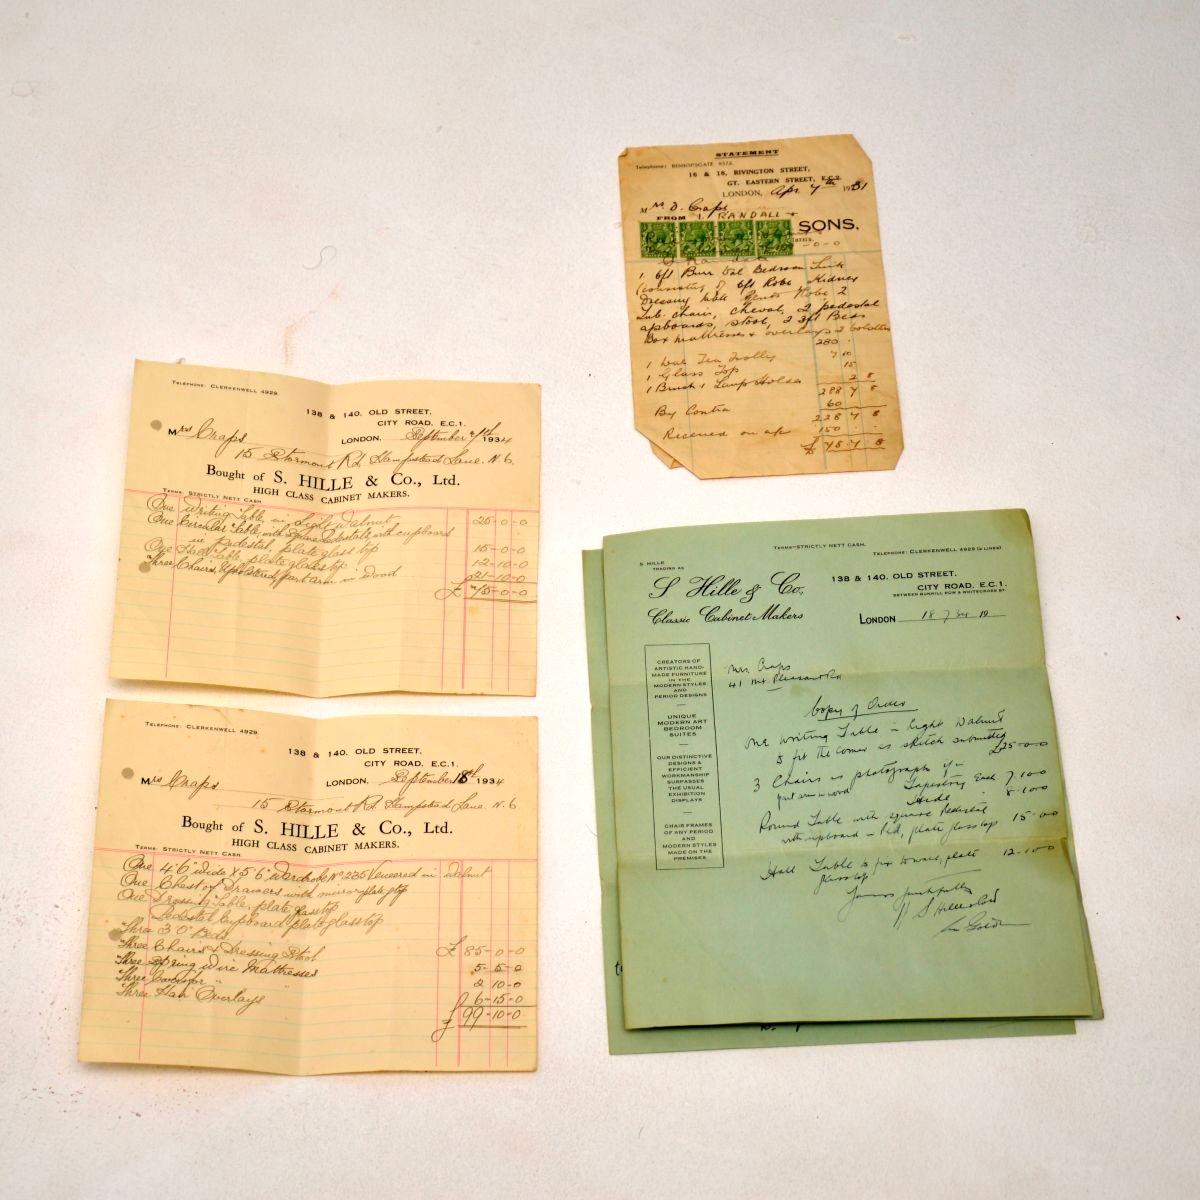 STATEMENT
Telephone: BISHOPSGATE
16 & 18, RIVINGTON STREET,
GT. EASTERN STREET, E.C.2.
LONDON, Apr 7th 1931
Mrs D. Craps
FROM I. RANDALL &
SONS,
1 6ft Burr Wal Bedroom Suite
(consisting of 6ft Robe Kidney
Dressing table Gents Robe 2
Tub chairs, cheval, 2 pedestal
cupboards, stool, 2 3ft Beds
Box mattresses & overlays 2 bolsters
280
1 Wal Tea Trolley 7 10
1 Glass Top 15
1 Brush 1 Lamp Holder 2 8
288 7 8
By Contra 60
228 7 8
Received on a/c 150
£ 78 7 8
TELEPHONE: CLERKENWELL 4929.
138 & 140. OLD STREET,
CITY ROAD, E.C.1.
LONDON, September 1934
Mrs Craps
15 Stormont Rd, Hampstead Lane. N.6.
Bought of S. HILLE & Co., Ltd.
HIGH CLASS CABINET MAKERS.
TERMS: STRICTLY NETT CASH
One writing Table, in Light Walnut 25-0-0
One Circular Table, with Square Pedestals with cupboards
in pedestal, plate glass top 15-0-0
One Hall Table, plate glass top 12-10-0
Three Chairs, Upholstered, part arm in wood 21-10-0
£ 75-0-0
TELEPHONE: CLERKENWELL 4929.
138 & 140. OLD STREET,
CITY ROAD, E.C.1.
LONDON, September 18th 1934
Mrs Craps
15 Stormont Rd. Hampstead Lane. N.6
Bought of S. HILLE & Co., Ltd.
HIGH CLASS CABINET MAKERS.
TERMS: STRICTLY NETT CASH
One 4'6" wide x 5'6" Wardrobe No 235 Veneered in Walnut
One Chest of Drawers with mirror plate top
One Dressing Table, plate glass top
Pedestal Cupboard plate glass top
Three 3'0" Beds
Three Chairs & Dressing Stool £ 85-0-0
Three Spring Wire Mattresses 5-5-0
Three " " 2 10-0
Three Hair Overlays 6-15-0
£ 99-10-0
TERMS—STRICTLY NETT CASH.
TELEPHONE: CLERKENWELL 4929 (2 LINES)
S HILLE
TRADING AS
S Hille & Co,
Classic Cabinet Makers
138 & 140. OLD STREET,
CITY ROAD, E.C.1.
BETWEEN BUNHILL ROW & WHITECROSS ST.
LONDON 18/7/34 19
CREATORS OF
ARTISTIC HAND-
MADE FURNITURE
IN THE
MODERN STYLES
AND
PERIOD DESIGNS
UNIQUE
MODERN ART
BEDROOM
SUITES
OUR DISTINCTIVE
DESIGNS &
EFFICIENT
WORKMANSHIP
SURPASSES
THE USUAL
EXHIBITION
DISPLAYS
CHAIR FRAMES
OF ANY PERIOD
AND
MODERN STYLES
MADE ON THE
PREMISES
Mrs. Craps
41 Mt Pleasant Rd
Copy of Order
One Writing Table – light Walnut
to fit the corner as sketch submitted
£25-0-0
3 Chairs as photograph
part arm in wood Tapestry Each 7.10.0
Hide 8.10.0
Round Table with square Pedestal
with cupboard plate glass top 15-0-0
Hall Table plate 12-10-0
glass top
Yours faithfully
S Hille & Co Ltd